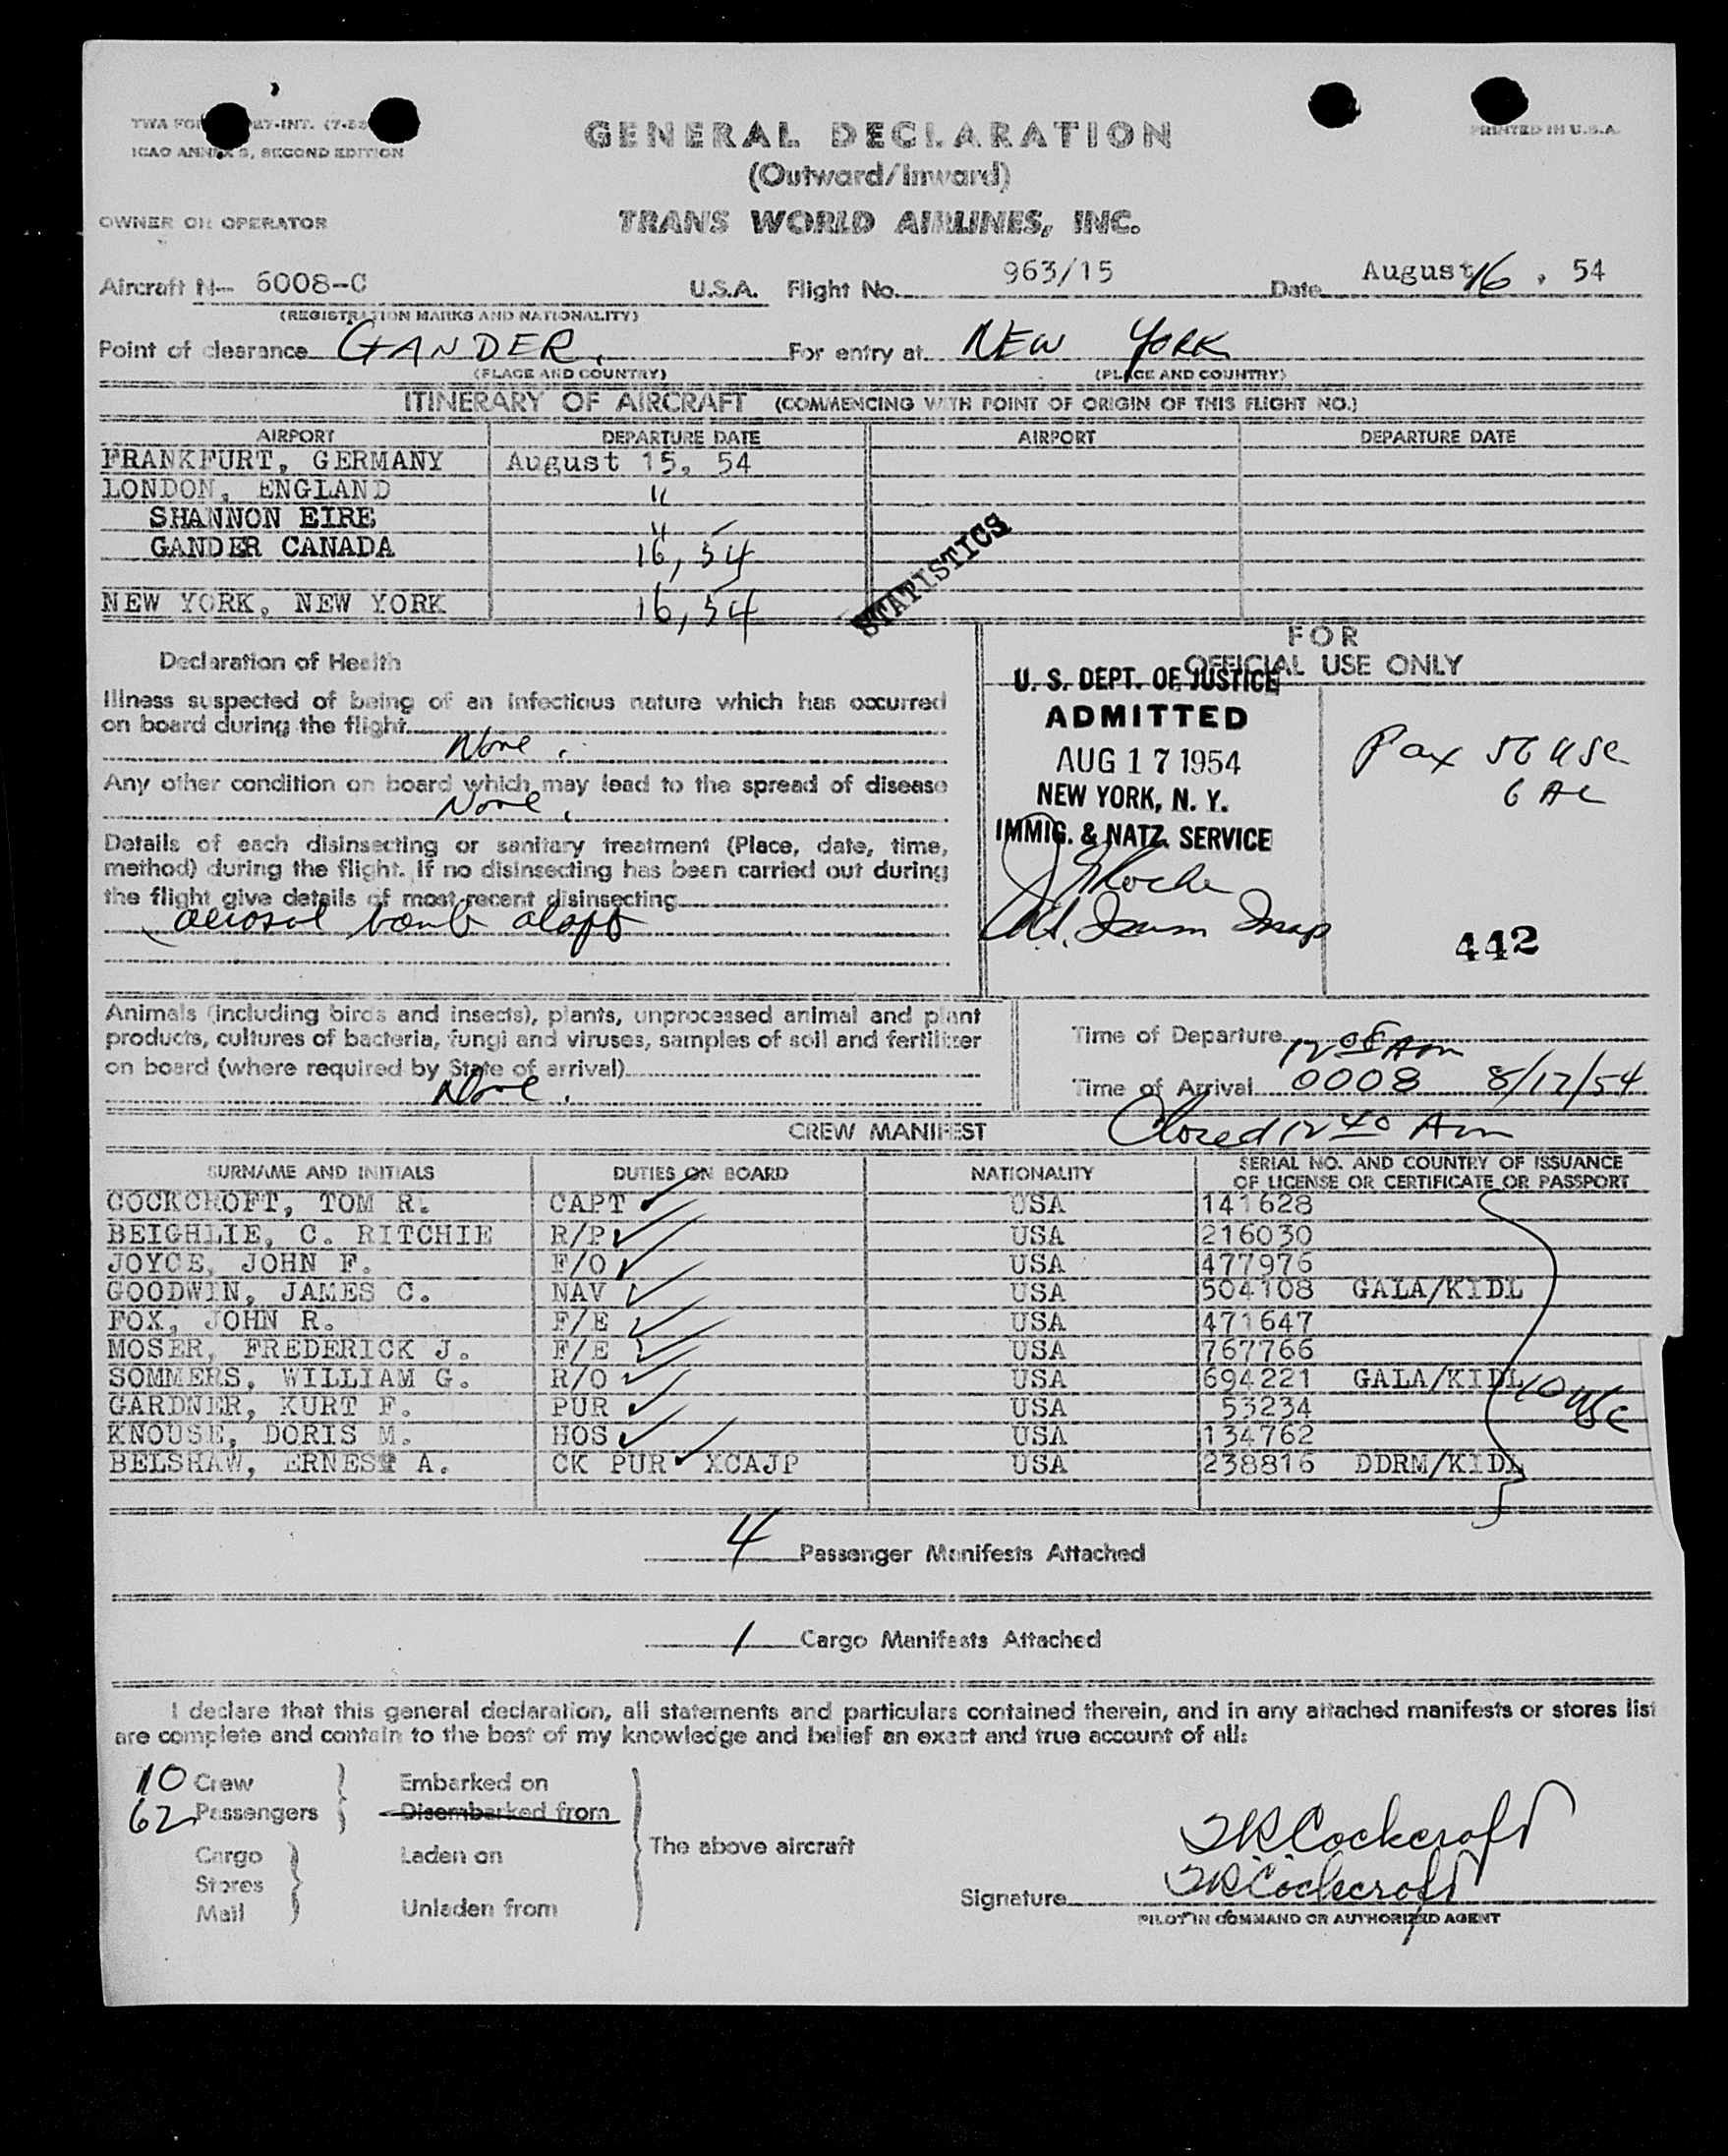 TWA FO 27-INT. (7-53
ICAO ANNEX 9, SECOND EDITION
PRINTED IN U.S.A.
GENERAL DECLARATION
(Outward/Inward)
OWNER OR OPERATOR
TRANS WORLD AIRLINES, INC.
Aircraft N- 6008-C U.S.A. Flight No. 963/15 Date August 16, 54
(REGISTRATION MARKS AND NATIONALITY)
Point of clearance GANDER, For entry at NEW YORK
(PLACE AND COUNTRY) (PLACE AND COUNTRY)
ITINERARY OF AIRCRAFT (COMMENCING WITH POINT OF ORIGIN OF THIS FLIGHT NO.)
AIRPORT DEPARTURE DATE AIRPORT DEPARTURE DATE
FRANKFURT, GERMANY August 15, 54
LONDON, ENGLAND "
SHANNON EIRE "
GANDER CANADA 16, 54
NEW YORK, NEW YORK 16, 54
STATISTICS
Declaration of Health
Illness suspected of being of an infectious nature which has occurred
on board during the flight
None.
Any other condition on board which may lead to the spread of disease
None.
Details of each disinsecting or sanitary treatment (Place, date, time,
method) during the flight. If no disinsecting has been carried out during
the flight give details of most recent disinsecting
aerosol bomb
FOR
OFFICIAL USE ONLY
U. S. DEPT. OF JUSTICE
ADMITTED
AUG 17 1954
NEW YORK, N. Y.
IMMIG. & NATZ. SERVICE
Roche
Imm Insp
Pax 56 USC
6 AC
442
Animals (including birds and insects), plants, unprocessed animal and plant
products, cultures of bacteria, fungi and viruses, samples of soil and fertilizer
on board (where required by State of arrival)
None.
Time of Departure
12 08 Am
Time of Arrival 0008 8/17/54
Closed 12 40 Am
CREW MANIFEST
SURNAME AND INITIALS DUTIES ON BOARD NATIONALITY SERIAL NO. AND COUNTRY OF ISSUANCE
OF LICENSE OR CERTIFICATE OR PASSPORT
COCKCROFT, TOM R. CAPT USA 141628
BEIGHLIE, C. RITCHIE R/P USA 216030
JOYCE, JOHN F. F/O USA 477976
GOODWIN, JAMES C. NAV USA 504108 GALA/KIDL
FOX, JOHN R. F/E USA 471647
MOSER, FREDERICK J. F/E USA 767766
SOMMERS, WILLIAM G. R/O USA 694221 GALA/KIDL
GARDNER, KURT F. PUR USA 53234
10 USC
KNOUSE, DORIS M. HOS USA 134762
BELSHAW, ERNEST A. CK PUR XCAJP USA 238816 DDRM/KIDL
4 Passenger Manifests Attached
1 Cargo Manifests Attached
I declare that this general declaration, all statements and particulars contained therein, and in any attached manifests or stores list
are complete and contain to the best of my knowledge and belief an exact and true account of all:
10 Crew Embarked on
62 Passengers Disembarked from
The above aircraft
Cargo Laden on
Stores
Mail Unladen from
TR Cockcroft
Signature TR Cockcroft
PILOT IN COMMAND OR AUTHORIZED AGENT